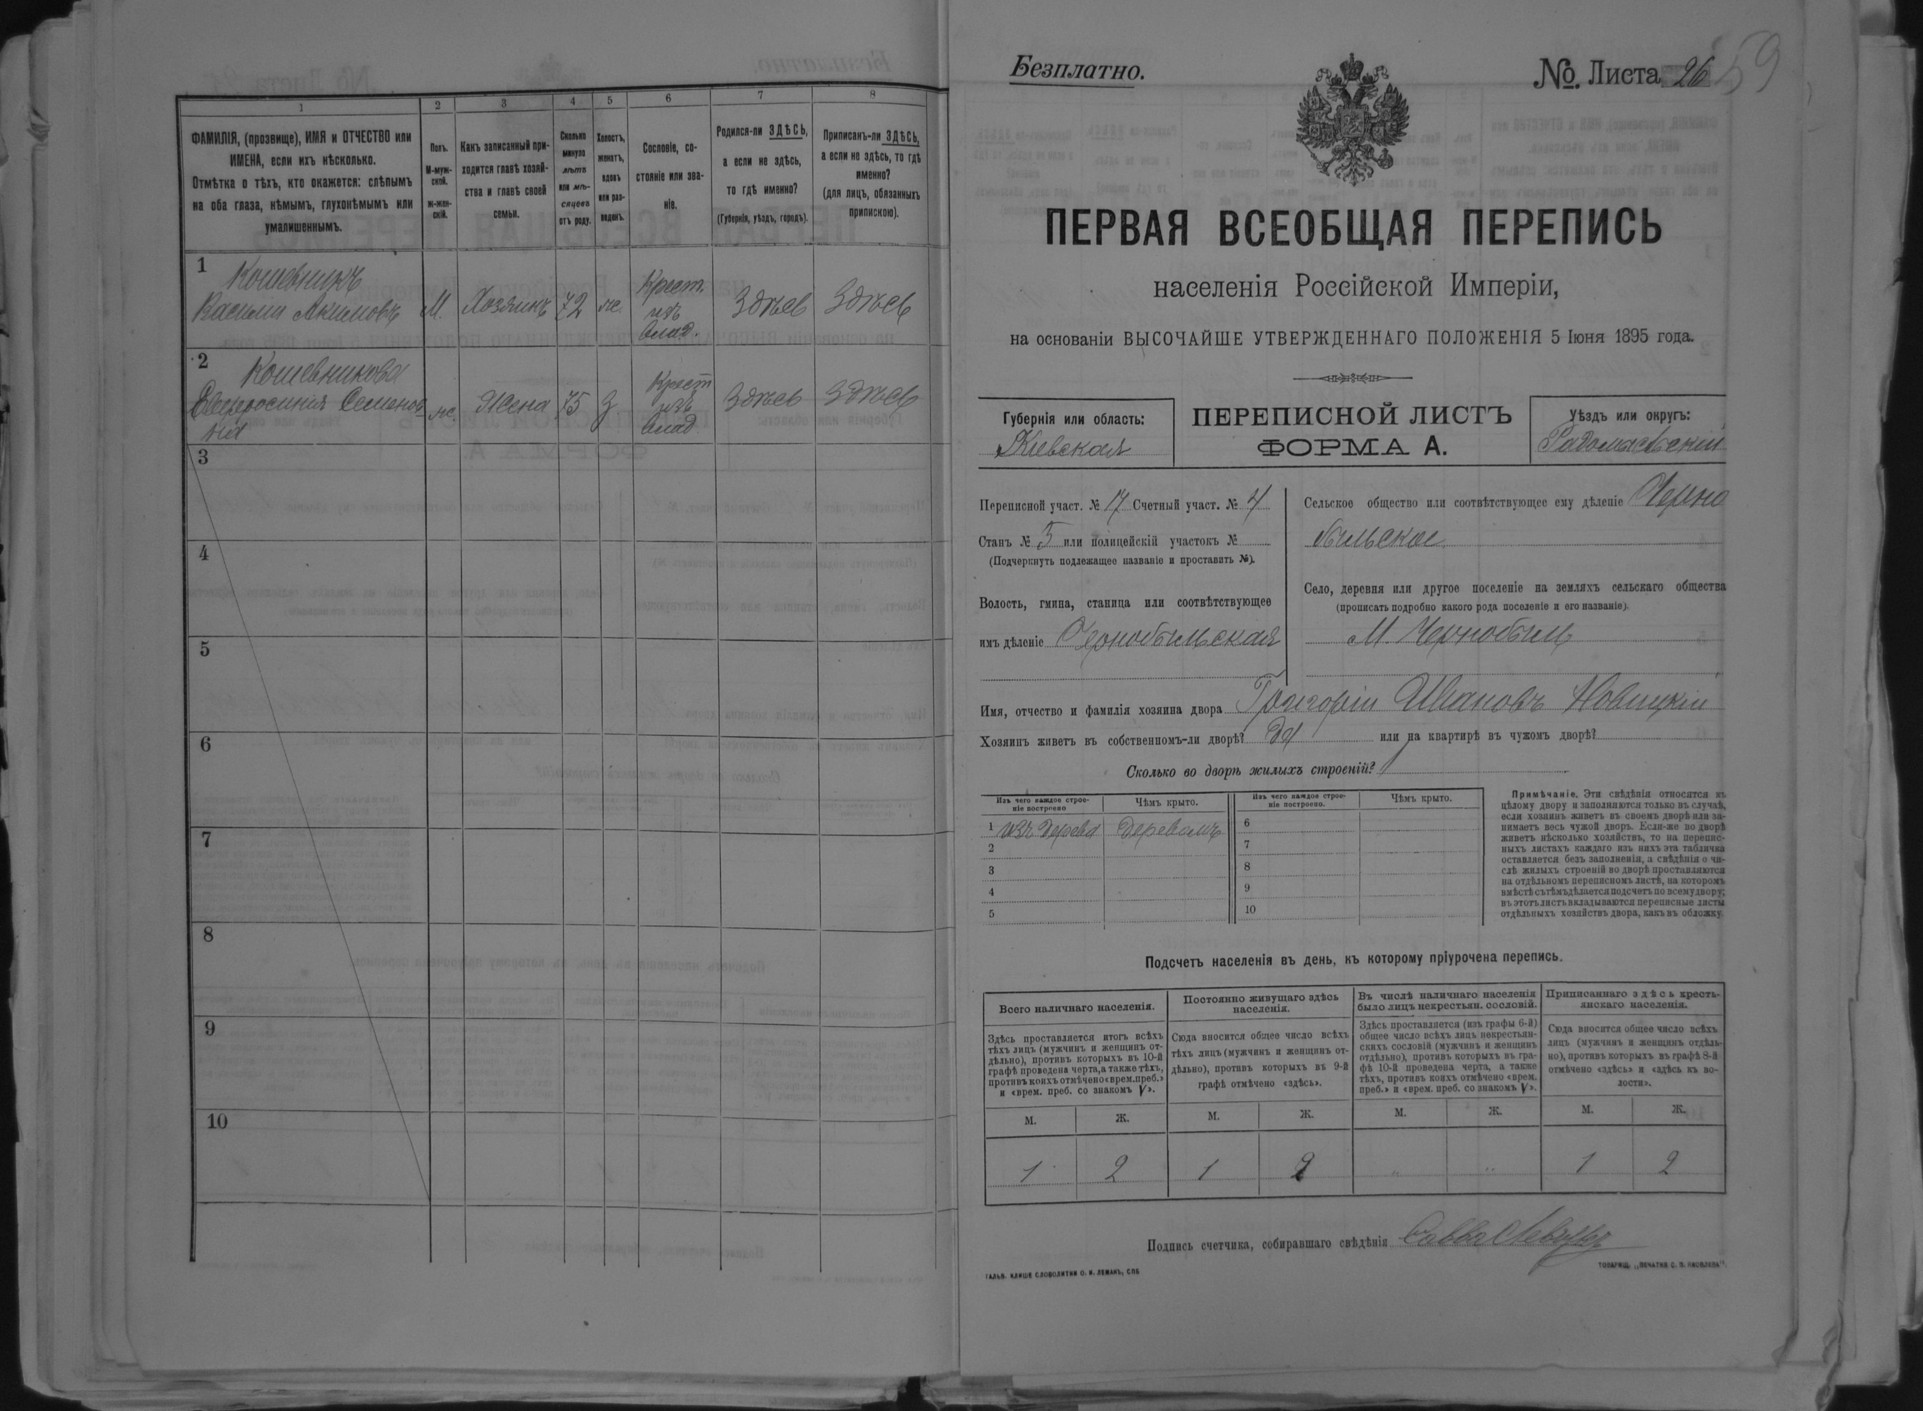 1
2
3
4
5
6
7
8
ФАМИЛІЯ, (прозвище), ИМЯ и ОТЧЕСТВО или
ИМЕНА, если ихъ нѣсколько.
Отмѣтка о тѣхъ, кто окажется: слѣпымъ
на оба глаза, нѣмымъ, глухонѣмымъ или
умалишеннымъ.
Полъ.
М-муж-
ской.
ж-жен-
скій.
Какъ записанный при-
ходится главѣ хозяй-
ства и главѣ своей
семьи.
Сколько
минуло
лѣтъ
или мѣ-
сяцевъ
отъ роду.
Холостъ,
женатъ,
вдовъ
или раз-
веденъ.
Сословіе, со-
стояніе или зва-
ніе.
Родился-ли ЗДѢСЬ,
а если не здѣсь,
то гдѣ именно?
(Губернія, уѣздъ, городъ).
Приписанъ-ли ЗДѢСЬ,
а если не здѣсь, то гдѣ
именно?
(для лицъ, обязанныхъ
припискою).
1
Василій Акимовъ
М.
Хозяинъ
72
же.
Крест.
изъ
влад.
Здѣсь
Здѣсь
2
Семенов
на
же.
Жена
75
з
Крест
изъ
влад
Здѣсь
Здѣсь
3
4
5
6
7
8
9
10
Безплатно.
№ Листа 26
59
ПЕРВАЯ ВСЕОБЩАЯ ПЕРЕПИСЬ
населенія Россійской Имперіи,
на основаніи ВЫСОЧАЙШЕ УТВЕРЖДЕННАГО ПОЛОЖЕНІЯ 5 Іюня 1895 года.
Губернія или область:
Кіевская
ПЕРЕПИСНОЙ ЛИСТЪ
ФОРМА А.
Уѣздъ или округъ:
Радомысльскій
Переписной участ. № 17 Счетный участ. № 4
Станъ № 5 или полицейскій участокъ №
(Подчеркнуть подлежащее названіе и проставить №).
Волость, гмина, станица или соотвѣтствующее
имъ дѣленіе Чернобыльская
Сельское общество или соотвѣтствующее ему дѣленіе Черно
быльское
Село, деревня или другое поселеніе на земляхъ сельскаго общества
(прописать подробно какого рода поселеніе и его названіе).
М. Чернобыль
Имя, отчество и фамилія хозяина двора Григорій Ивановъ Новицкій
Хозяинъ живетъ въ собственномъ-ли дворѣ? Да или на квартирѣ въ чужомъ дворѣ?
Сколько во дворѣ жилыхъ строеній? 1
Изъ чего каждое строе-
ніе построено
Чѣмъ крыто.
Изъ чего каждое строе-
ніе построено.
Чѣмъ крыто.
1 изъ дерева деревомъ 6
2 7
3 8
4 9
5 10
Примѣчаніе. Эти свѣдѣнія относятся къ
цѣлому двору и заполняются только въ случаѣ,
если хозяинъ живетъ въ своемъ дворѣ или за-
нимаетъ весь чужой дворъ. Если-же во дворѣ
живетъ нѣсколько хозяйствъ, то на перепис-
ныхъ листахъ каждаго изъ нихъ эта табличка
оставляется безъ заполненія, а свѣдѣнія о чи-
слѣ жилыхъ строеній во дворѣ проставляются
на отдѣльномъ переписномъ листѣ, на которомъ
вмѣстѣ съ тѣмъ дѣлается подсчетъ по всему двору;
въ этотъ листъ вкладываются переписные листы
отдѣльныхъ хозяйствъ двора, какъ въ обложку.
Подсчетъ населенія въ день, къ которому пріурочена перепись.
Всего наличнаго населенія.
Здѣсь проставляется итогъ всѣхъ
тѣхъ лицъ (мужчинъ и женщинъ от-
дѣльно), противъ которыхъ въ 10-й
графѣ проведена черта, а также тѣхъ,
противъ коихъ отмѣчено «врем. преб.»
и «врем. преб. со знакомъ V».
Постоянно живущаго здѣсь
населенія.
Сюда вносится общее число всѣхъ
тѣхъ лицъ (мужчинъ и женщинъ от-
дѣльно), противъ которыхъ въ 9-й
графѣ отмѣчено «здѣсь».
Въ числѣ наличнаго населенія
было лицъ некрестьян. сословій.
Здѣсь проставляется (изъ графы 6-й)
общее число всѣхъ лицъ некрестьян-
скихъ сословій (мужчинъ и женщинъ
отдѣльно), противъ которыхъ въ гра-
фѣ 10-й проведена черта, а также
тѣхъ, противъ коихъ отмѣчено «врем.
преб.» и «врем. преб. со знакомъ V».
Приписаннаго здѣсь кресть-
янскаго населенія.
Сюда вносится общее число всѣхъ
лицъ (мужчинъ и женщинъ отдѣль-
но), противъ которыхъ въ графѣ 8-й
отмѣчено «здѣсь» и «здѣсь въ во-
лости».
М. Ж. М. Ж. М. Ж. М. Ж.
1 2 1 2 „ „ 1 2
Подпись счетчика, собиравшаго свѣдѣнія Савва
ГАЛЬВ. КЛИШЕ СЛОВОЛИТНИ О. И. ЛЕМАНЪ, СПБ
ТОВАРИЩ. „ПЕЧАТНИ С. П. ЯКОВЛЕВА".